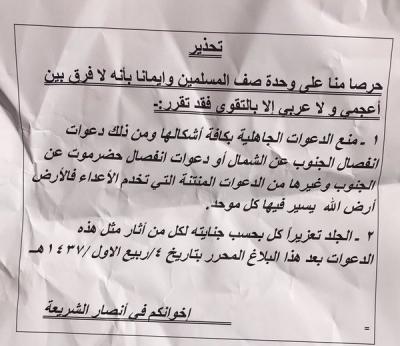 تحذير
حرصا منا على وحدة صف المسلمين وإيمانا بأنه لا فرق بين
أعجمي و لا عربي الا بالتقوى فقد تقرر:-
١ - منع الدعوات الجاهلية بكافة أشكالها ومن ذلك دعوات
انفصال الجنوب عن الشمال أو دعوات انفصال حضرموت عن
الجنوب وغيرها من الدعوات المنتنة التي تخدم الأعداء فالأرض
أرض الله يسير فيها كل موحد.
٢ - الجلد تعزيراً كل بحسب جنايته لكل من أثار مثل هذه
الدعوات بعد هذا البلاغ المحرر بتاريخ ٤/ربيع الاول /١٤٣٧هـ
إخوانكم في أنصار الشريعة
=